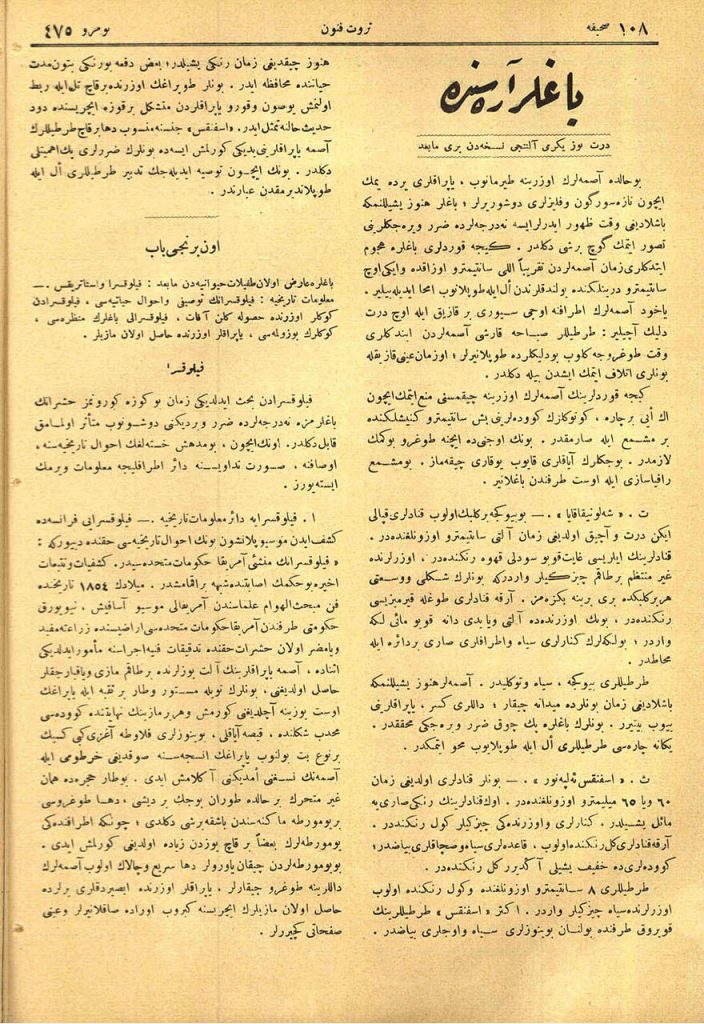 صحیفه ١٠٨
ثروت فنون
نومرو ٤٧٥
باغلر آره‌سنده
درت یوز یكرمی آلتنجی نسخه‌دن بری مابعد
بوحالده آصمه‌لرك اوزرینه طیرمانوب ، یاپراقلری برده یمك
ایچون تازه سورگون وفلیزلری دوشوررلر ؛ باغلر هنوز یشیللنمكه
باشلادیغی وقت ظهور ایدرلرایسه نه‌درجه‌لرده ضرر ویره‌جكلرینی
تصور ایتمك كوچ برشی دكلدر . كیجه قوردلری باغلره هجوم
ایتدكلری زمان آصمه‌لردن تقریباً اللی سانتیمترو اوزاقده وایكی اوچ
سانتیمترو درینلكنده بولندقلرندن أل ایله طوپلانوب امحا ایدیله‌بیلیر .
یاخود آصمه‌لرك اطرافنه اوجی سیوری بر قازیق ایله اوچ درت
دلیك آچیلیر : طرطیللر صباحه قارشی آصمه‌لردن ایندكلری
وقت طوغروجه كلوب بودلیكلرده طوپلانیرلر ؛ اوزمان عینی قازیقله
بونلری اتلاف ایتمك ایشدن بیله دكلدر .
كیجه قوردلرینك آصمه‌لرك اوزرینه چیقمسنی منع ایتمك ایچون
اك أیی برچاره ، كوتوكلرك كووده‌لرینی یش سانتیمترو كنیشلكنده
بر مشمع ایله صارمقدر . بونك اوجنی‌ده ایچنه طوغرو بوكمك
لازمدر . بوجكلرك آیاقلری قایوب یوقاری چیقه‌ماز . بومشمع
رافیاسازی ایله اوست طرفندن باغلانیر .
ت . « شه‌لونیقاقایا » — بوبیوكجه بركلبك اولوب قنادلری قپالی
ایكن درت و آچیق اولدیغی زمان آلتی سانتیمترو اوزونلغنده‌در .
قنادلرینك ایلریسی غایت قویو سودلی قهوه رنكنده‌در ، اوزرلرنده
غیر منتظم برطاقم چزكیلر واردركه بونلرك شكلی ووسعتی
هركلبكده بری برینه بكزه‌مز . آرقه قنادلری طوغله قیرمیزیسی
رنكنده‌در ، بونك اوزرنده‌ده آلتی ویا یدی دانه قویو مائی لكه
واردر ؛ بولكه‌لرك كنارلری سیاه واطرافلری صاری بردائره ایله
محاطدر .
طرطیللری بیوكجه ، سیاه وتوكلیدر . آصمه‌لرهنوز یشیللنمكه
باشلادیغی زمان بونلرده میدانه چیقار ؛ داللری كسر ، یاپراقلرینی
یییوب بیتیرر . بونلرك باغلره پك چوق ضرر ویره‌جكی محققدر .
یكانه چاره‌سی طرطیللری أل ایله طوپلایوب محو ایتمكدر .
ث . « اسفنقس ئه‌لپه‌نور » . — بونلر قنادلری اولدیغی زمان
٦٠ ویا ٦٥ میلیمترو اوزونلغنده‌در . اوك قنادلرینك رنكی صاری‌یه
مائل یشیلدر . كنارلری واوزرنده‌كی چزكیلر كول رنكنده‌در .
آرقه قنادلری كل رنكنده اولوب ، قاعده‌لری سیاه وصچاقلری بیاضدر ؛
كووده‌لری‌ده خفیف یشیلی آكدیرر كل رنكنده‌در .
طرطیللری ٨ سانتیمترو اوزونلغنده وكول رنكنده اولوب
اوزرلرنده سیاه چیزكیلر واردر . اكثر « اسفنقس » طرطیللرینك
قویروق طرفنده بولنان بوینوزلری سیاه واوجلری بیاضدر .
هنوز چیقدیغی زمان رنكی یشیلدر ؛ بعض دفعه بورنكی بتون مدت
حیاتنده محافظه ایدر . بونلر طوپراغك اوزرنده برقاچ تل ایله ربط
اولنمش یوصون وقورو یاپراقلردن متشكل برقوزه ایچریسنده دود
حدیث حالنه تمثل ایدر . « اسفنقس » جنسنه منسوب دها برقاچ طرطیللرك
آصمه یاپراقلرینی یدیكی كورلمش ایسه‌ده بونلرك ضررلری پك اهمیتلی
دكلدر . بونك ایچون توصیه ایدیله‌جك تدبیر طرطیللری أل ایله
طوپلاندیرمقدن عبارتدر .
اون برنجی باب
باغلره عارض اولان طفیلات حیوانیه‌دن مابعد : فیلوقسرا واستاتریقس . —
معلومات تاریخیه : فیلوقسرانك توصیفی واحوال حیاتیه‌سی ، فیلوقسرادن
كوكلر اوزرنده حصوله كلن آفات ، فیلوقسرالی باغلرك منظره‌سی ،
كوكلرك بوزولمه‌سی ، یاپراقلر اوزرنده حاصل اولان مازیلر .
فیلوقسرا
فیلوقسرادن بحث ایدلدیكی زمان بو كوزه كورونمز حشراتك
باغلرمزه نه‌درجه‌لرده ضرر ویردیكنی دوشونوب متأثر اولمامق
قابل دكلدر . اونك ایچون ، بومدهش خسته‌لفك احوال تاریخیه‌سنه ،
اوصافنه ، صورت تداویسنه دائر اطرافلیجه معلومات ویرمك
ایسته‌یورز .
١ . فیلوقسرایه دائر معلومات تاریخیه — فیلوقسرایی فرانسه‌ده
كشف ایدن موسیو پلانشون بونك احوال تاریخیه‌سی حقنده دییوركه :
« فیلوقسرانك منشئی آمریقا حكومات متحده‌سیدر . كشفیات وتتبعات
اخیره بوحكمك اصابتنده شبهه براقمامشدر . میلادك ١٨٥٤ تاریخنده
فن مبحث الهوام علماسندن آمریقالی موسیو آسافیتش ، نیویورق
حكومتی طرفندن آمریقا حكومات متحده‌سی اراضیسنده زراعته مفید
ویامضر اولان حشرات حقنده تدقیقات فنیه اجراسنه مأمور ایدلدیكی
اثناده ، آصمه یاپراقلرینك آلت یوزلرنده برطاقم مازی ویاقبارجقلر
حاصل اولدیغنی ، بونلرك تویله مستور وطار بر ثقبه ایله یاپراغك
اوست یوزینه آچلدیغنی كورمش وهربرمازینك نهایتنده كووده‌سی
محدب شكلنده ، قیصه آیاقلی ، بوینوزلری فلاوطه آغزی كبی كسیك
برنوع بت بولنوب یاپراغك انسجه‌سنه صوقدیغی خرطومی ایله
آصمه‌نك نسغنی أمدیكنی آكلامش ایدی . بوطار حجره‌ده همان
غیر متحرك برحالده طوران بوجك بر دیشی ، دها طوغروسی
بریومورطه ماكنه‌سندن باشقه برشی دكلدی ؛ چونكه اطرافنده‌كی
یومورطه‌لرك بعضاً بر قاچ یوزدن زیاده اولدیغی كورلمش ایدی .
بویومورطه‌لردن چیقان یاورولر دها سریع وچالاك اولوب آصمه‌لرك
داللرینه طوغرو چیقارلر ، یاپراقلر اوزرنده ایصیردقلری یرلرده
حاصل اولان مازیلرك ایچریسنه كیروب اوراده صاقلانیرلر وعینی
صفحاتی كچیررلر .